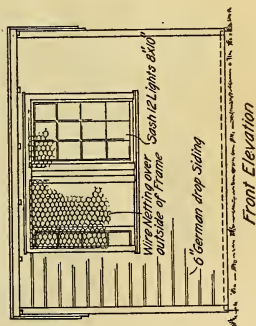 Sash 12 Lights 8x10"
Wire Netting over
outside of Frame
6" German drop Siding
Front Elevation